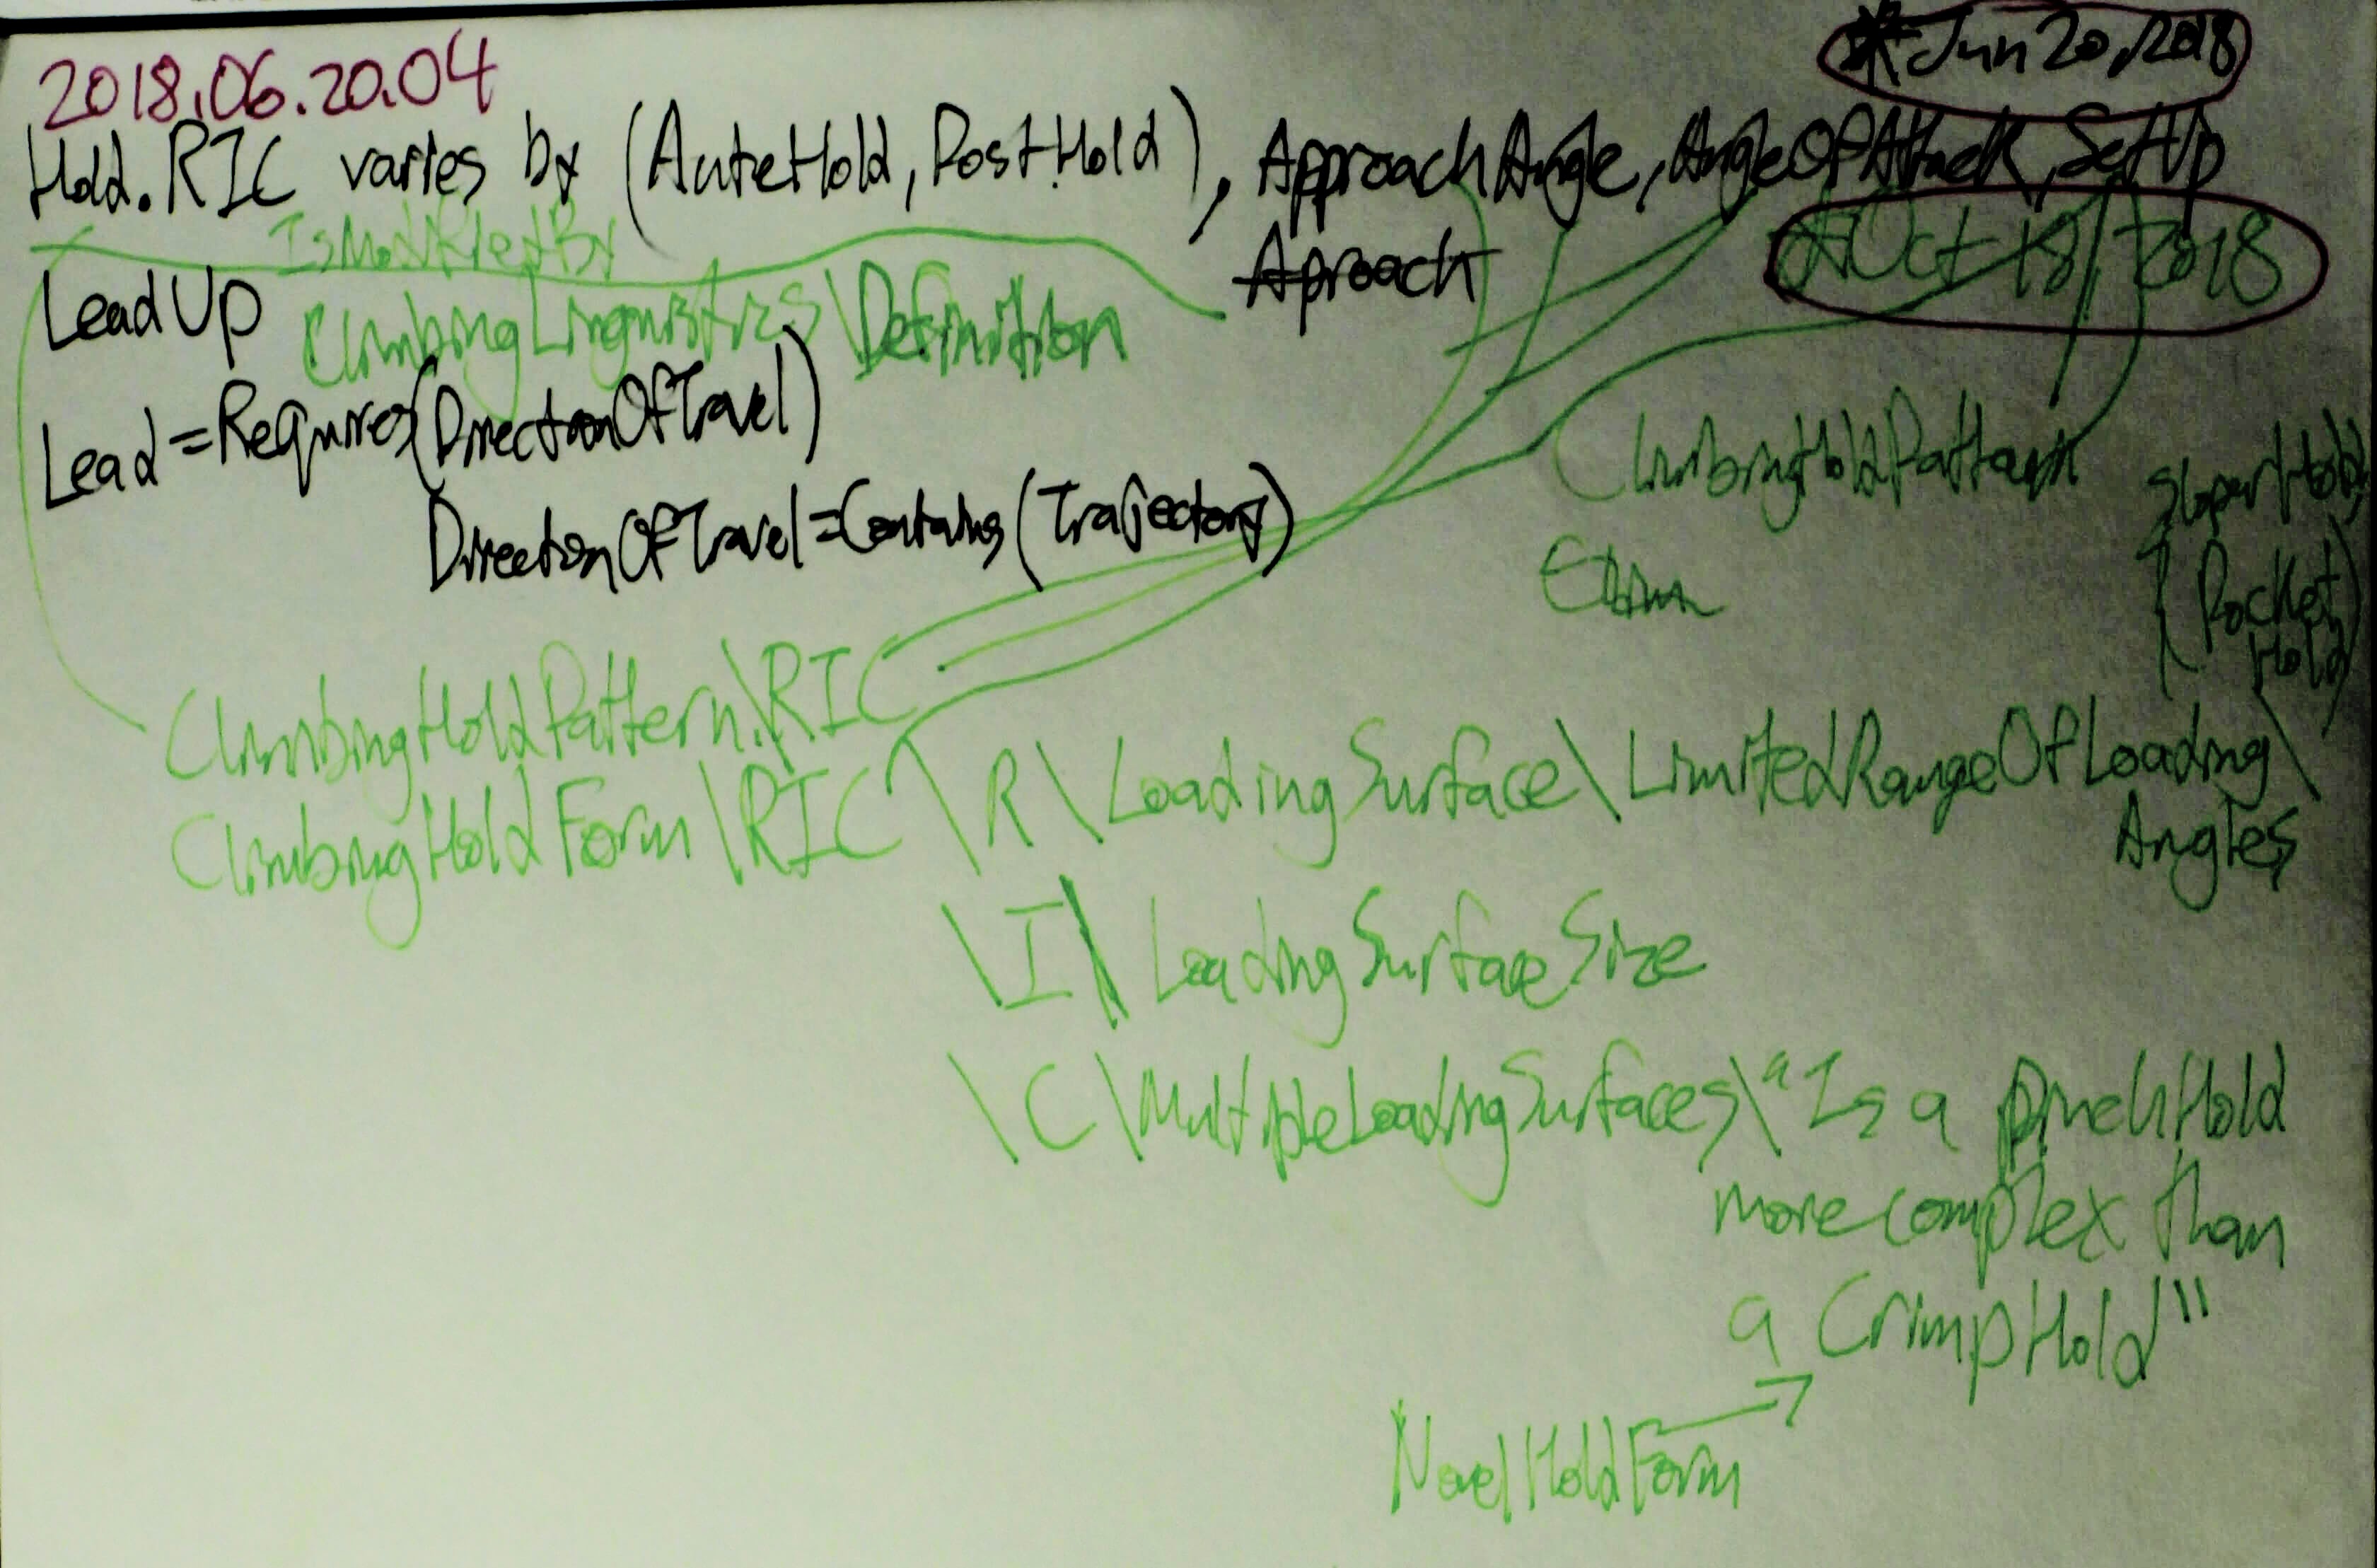 2018.06.20.04
*Jun 20, 2018
Hold.RIC varies by (AnteHold, PostHold), ApproachAngle, AngleOfAttack, SetUp
IsModifiedBy
Aproach
*Oct 18, 2018
LeadUp
ClimbingLinguistics\Definition
Lead=Requires(DirectionOfTravel)
DirectionOfTravel=Contains(Trajectory)
ClimbingHoldPattern
SloperHold
(Pocket
Hold)
ClimbingHoldPattern.\RIC
ClimbingHoldForm\RIC\R\LoadingSurface\LimitedRangeOfLoading\
Angles
\I\LoadingSurfaceSize
\C\MultipleLoadingSurfaces\"Is a pinchHold
more complex than
a CrimpHold"
NovelHoldForm